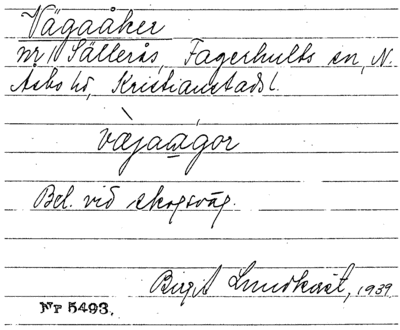 Vägaåker
nr 1 Sällerås, Fagerhults sn, N.
Asbo hd, Kristianstads l.
väjaagor
Bel. vid skogsväg.
Birgit Lundkvist, 1939
Nr 5493.